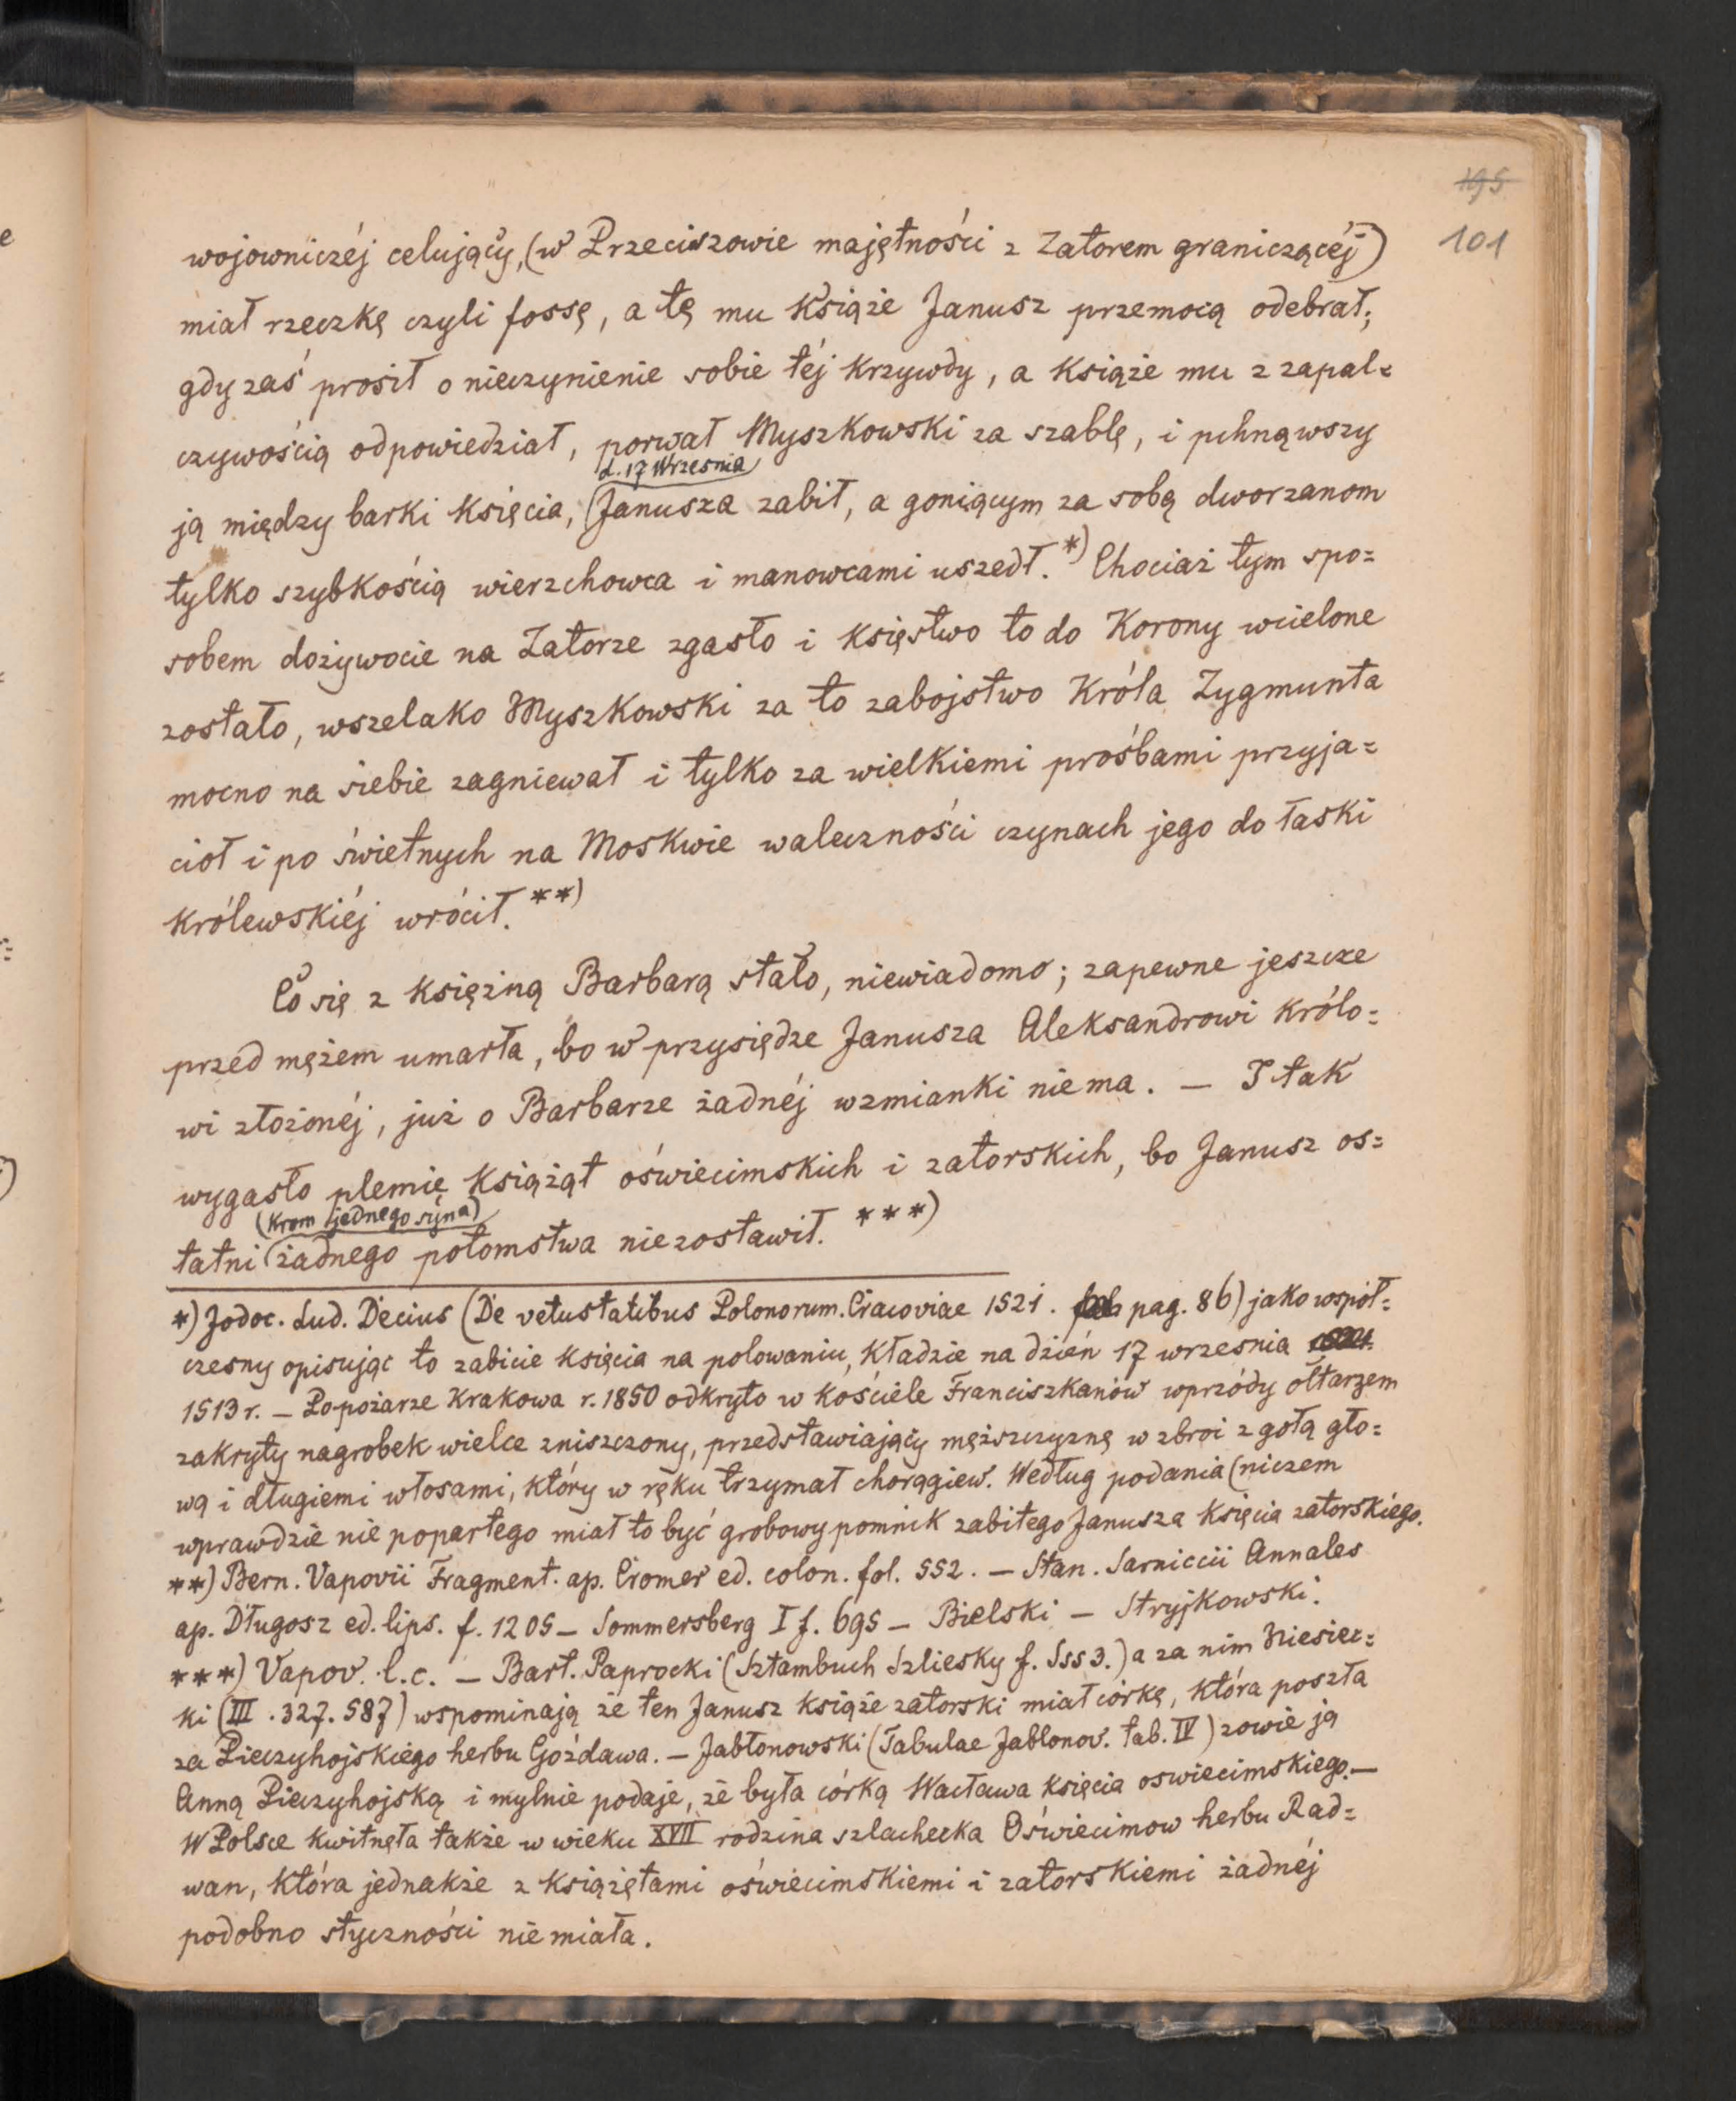 195
101
wojowniczéj celujący, (w Przeciszowie majętności z Zatorem graniczącéj)
miał rzeczkę czyli fossę, a tę mu Książe Janusz przemocą odebrał;
gdy zaś prosił o nieczynienie sobie téj krzywdy, a książe mu z zapal=
czywością odpowiedział, porwał Myszkowski za szablę, i pchnąwszy
d. 17 Wrzesnia
ją między barki księcia, Janusza zabił, a goniącym za sobą dworzanom
tylko szybkością wierzchowca i manowcami uszedł. *) Chociaż tym spo=
sobem dożywocie na Zatorze zgasło i księstwo to do Korony wcielone
zostało, wszelako Myszkowski za to zabojstwo Króla Zygmunta
mocno na siebie zagniewał i tylko za wielkiemi prośbami przyja=
ciół i po świetnych na Moskwie waleczności czynach jego do łaski
królewskiéj wrócił. **)
Co się z księżną Barbarą stało, niewiadomo; zapewne jeszcze
przed mężem umarła, bo w przysiędze Janusza Aleksandrowi królo=
wi złożonéj, już o Barbarze żadnéj wzmianki niema. — I tak
wygasło plemię książąt oświecimskich i zatorskich, bo Janusz os=
(krom jednego syna)
tatni żadnego potomstwa niezostawił. ***)
*) Jodoc. Lud. Decius (De vetustatibus Polonorum. Cracoviae 1521. pag. 86) jako współ=
czesny opisując to zabicie księcia na polowaniu, kładzie na dzień 17 wrzesnia
1513 r. — Po pożarze Krakowa r. 1850 odkryto w kościele Franciszkanów wprzódy ołtarzem
zakryty nagrobek wielce zniszczony, przedstawiający męższczyznę w zbroi z gołą gło=
wą i długiemi włosami, który w ręku trzymał chorągiew. Według podania (niczem
wprawdzie nie popartego miał to być grobowy pomnik zabitego Janusza księcia zatorskiego.
**) Bern. Vapovii Fragment. ap. Cromer ed. colon. fol. 552. — Stan. Sarniccii Annales
ap. Długosz ed. lips. f. 1205 — Sommersberg I f. 695 — Bielski — Stryjkowski.
***) Vapov. l. c. — Bart. Paprocki (Sztambuch Szliesky f. Sss 3.) a za nim Niesiec=
ki (III. 327. 587) wspominają że ten Janusz książe zatorski miał córkę, która poszła
za Pieczyhojskiego herbu Gozdawa. — Jabłonowski (Tabulae Jablonov. tab. IV) zowie ją
Anną Pieczyhojską i mylnie podaje, że była córką Wacława księcia oswiecimskiego. —
W Polsce kwitnęła także w wieku XVII rodzina szlachecka Oświecimow herbu Rad=
wan, która jednakże z książętami oświecimskiemi i zatorskiemi żadnéj
podobno styczności nie miała.